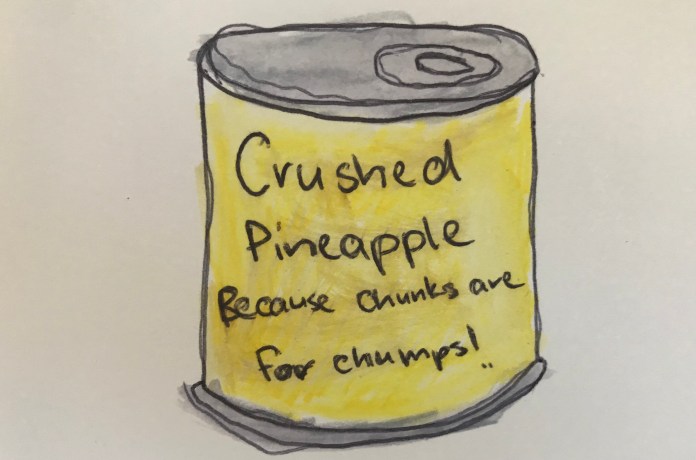 Crushed
Pineapple
Because chunks are
for chumps!